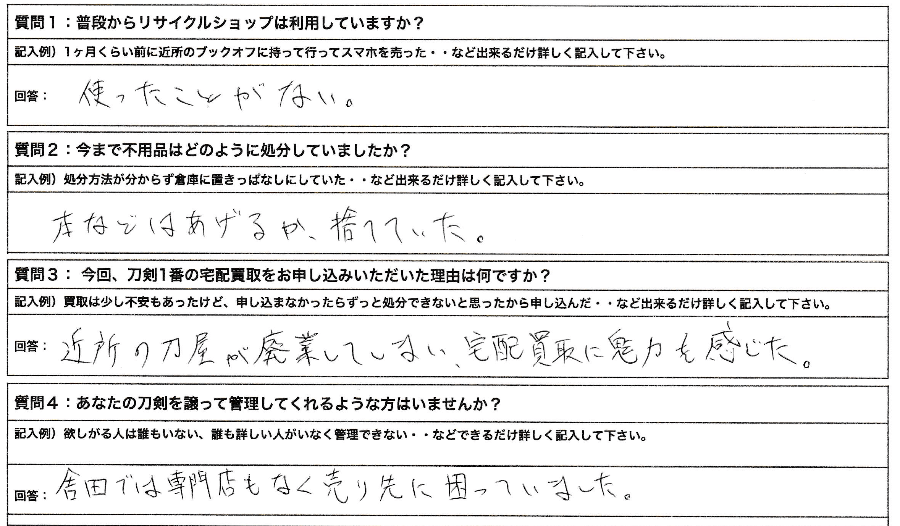 質問１：普段からリサイクルショップは利用していますか？
記入例）１ヶ月くらい前に近所のブックオフに持って行ってスマホを売った・・など出来るだけ詳しく記入して下さい。
回答： 使ったことがない。
質問２：今まで不用品はどのように処分していましたか？
記入例）処分方法が分からず倉庫に置きっぱなしにしていた・・など出来るだけ詳しく記入して下さい。
本などはあげるか、捨てていた。
質問３： 今回、刀剣1番の宅配買取をお申し込みいただいた理由は何ですか？
記入例）買取は少し不安もあったけど、申し込まなかったらずっと処分できないと思ったから申し込んだ・・など出来るだけ詳しく記入して下さい。
回答： 近所の刀屋が廃業してしまい、宅配買取に魅力を感じた。
質問４：あなたの刀剣を譲って管理してくれるような方はいませんか？
記入例）欲しがる人は誰もいない、誰も詳しい人がいなく管理できない・・などできるだけ詳しく記入して下さい。
回答： 田舎では専門店もなく売り先に困っていました。